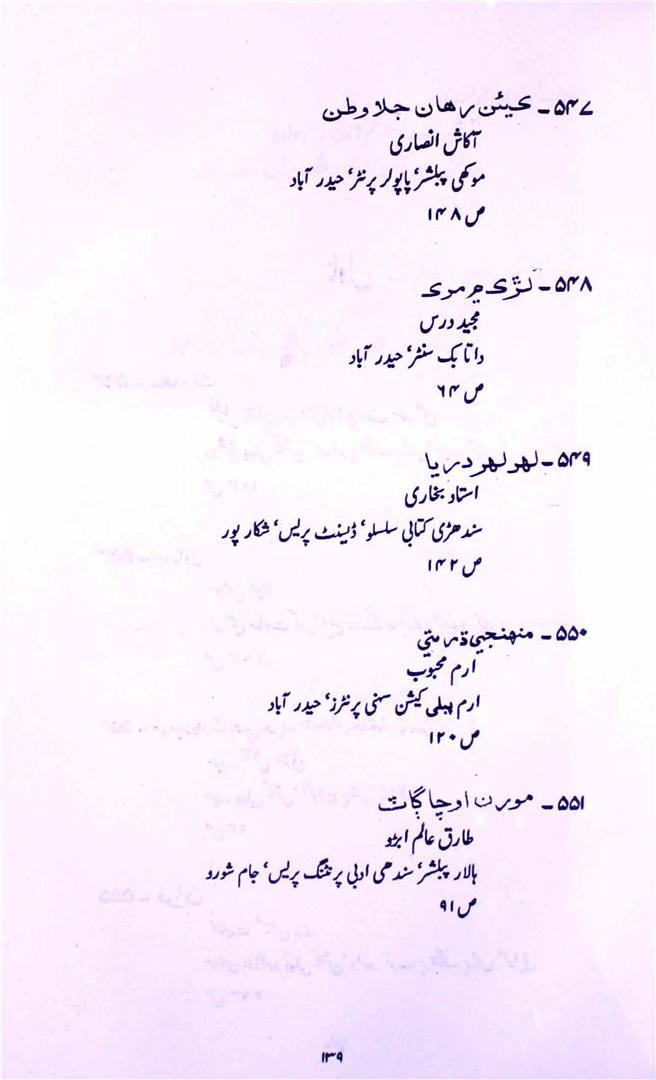 ۵۴۷ ـ ڪيئن رهان جلاوطن
آکاش انصاری
موکھی پبلشر، پاپولر پرنٹر، حیدر آباد
ص ۱۴۸
۵۴۸ ـ لڙڪ ۾ مرڪ
مجید درس
داتا بک سنٹر، حیدر آباد
ص ۶۴
۵۴۹ ـ لهر لهر دريا
استاد بخاری
سندھڑی کتابی سلسلو، ڈیسنٹ پریس، شکار پور
ص ۱۴۲
۵۵۰ ـ منهنجي ڌرتي
ارم محبوب
ارم پبلی کیشن سہنی پرنٹرز، حیدر آباد
ص ۱۲۰
۵۵۱ ـ مورن اوچا ڳاٽ
طارق عالم ابڑو
ہالار پبلشر، سندھی ادبی پرنٹنگ پریس، جام شورو
ص ۹۱
۱۳۹